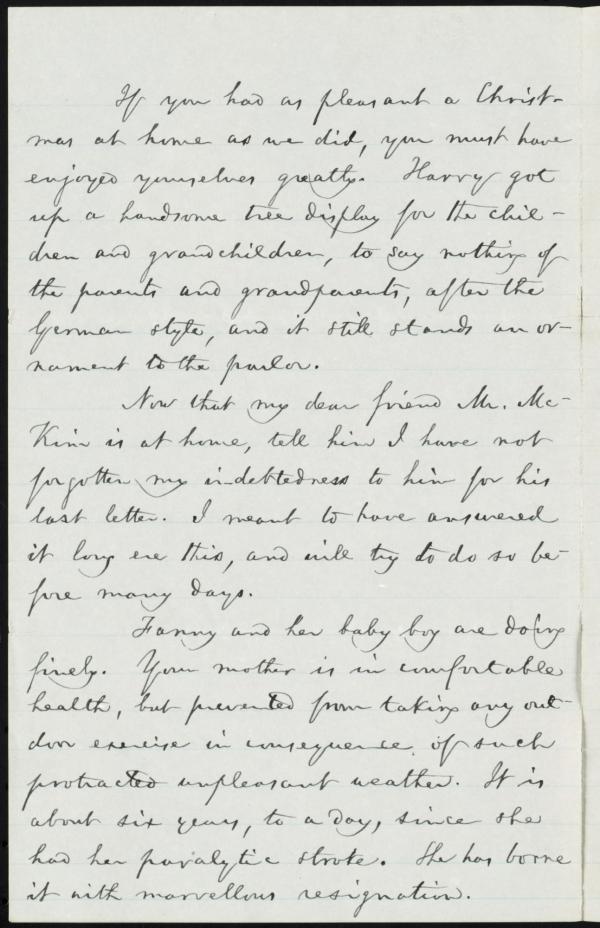 If you had as pleasant a Christ-
mas at home as we did, you must have
enjoyed yourselves greatly. Harry got
up a handsome tree display for the chil-
dren and grandchildren, to say nothing of
the parents and grandparents, after the
German style, and it still stands an or-
nament to the parlor.
Now that my dear friend Mr. Mc-
Kim is at home, tell him I have not
forgotten my indebtedness to him for his
last letter. I meant to have answered
it long ere this, and will try to do so be-
fore many days.
Fanny and her baby boy are doing
finely. Your mother is in comfortable
health, but prevented from taking any out-
door exercise in consequence of such
protracted unpleasant weather. It is
about six years, to a day, since she
had her paralytic stroke. She has borne
it with marvellous resignation.